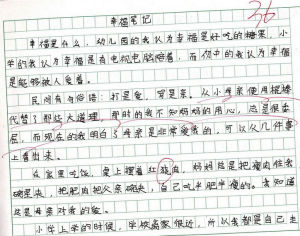 幸福笔记
36
幸福是什么,幼儿园的我认为幸福是好吃的糖果,小
学的我认为幸福是有电视电脑陪着,而初中的我认为幸福
是能够被人爱着。
民间有句俗语:打是爱,骂是亲,从小母亲使用棍棒
代替了那些大道理,那时的我不知妈妈的用心,总是很委
屈,而现在的我明白了母亲是非常爱我的,可以从几件事
上看出来。
在家里吃饭,桌上摆着红烧肉,妈妈总是把瘦肉往我
碗里夹,把肥肉往父亲碗夹,自己吃半肥半瘦的。我知道
这是母亲对我的爱。
小学上学的时候,学校离家很近,所以我都是自己走